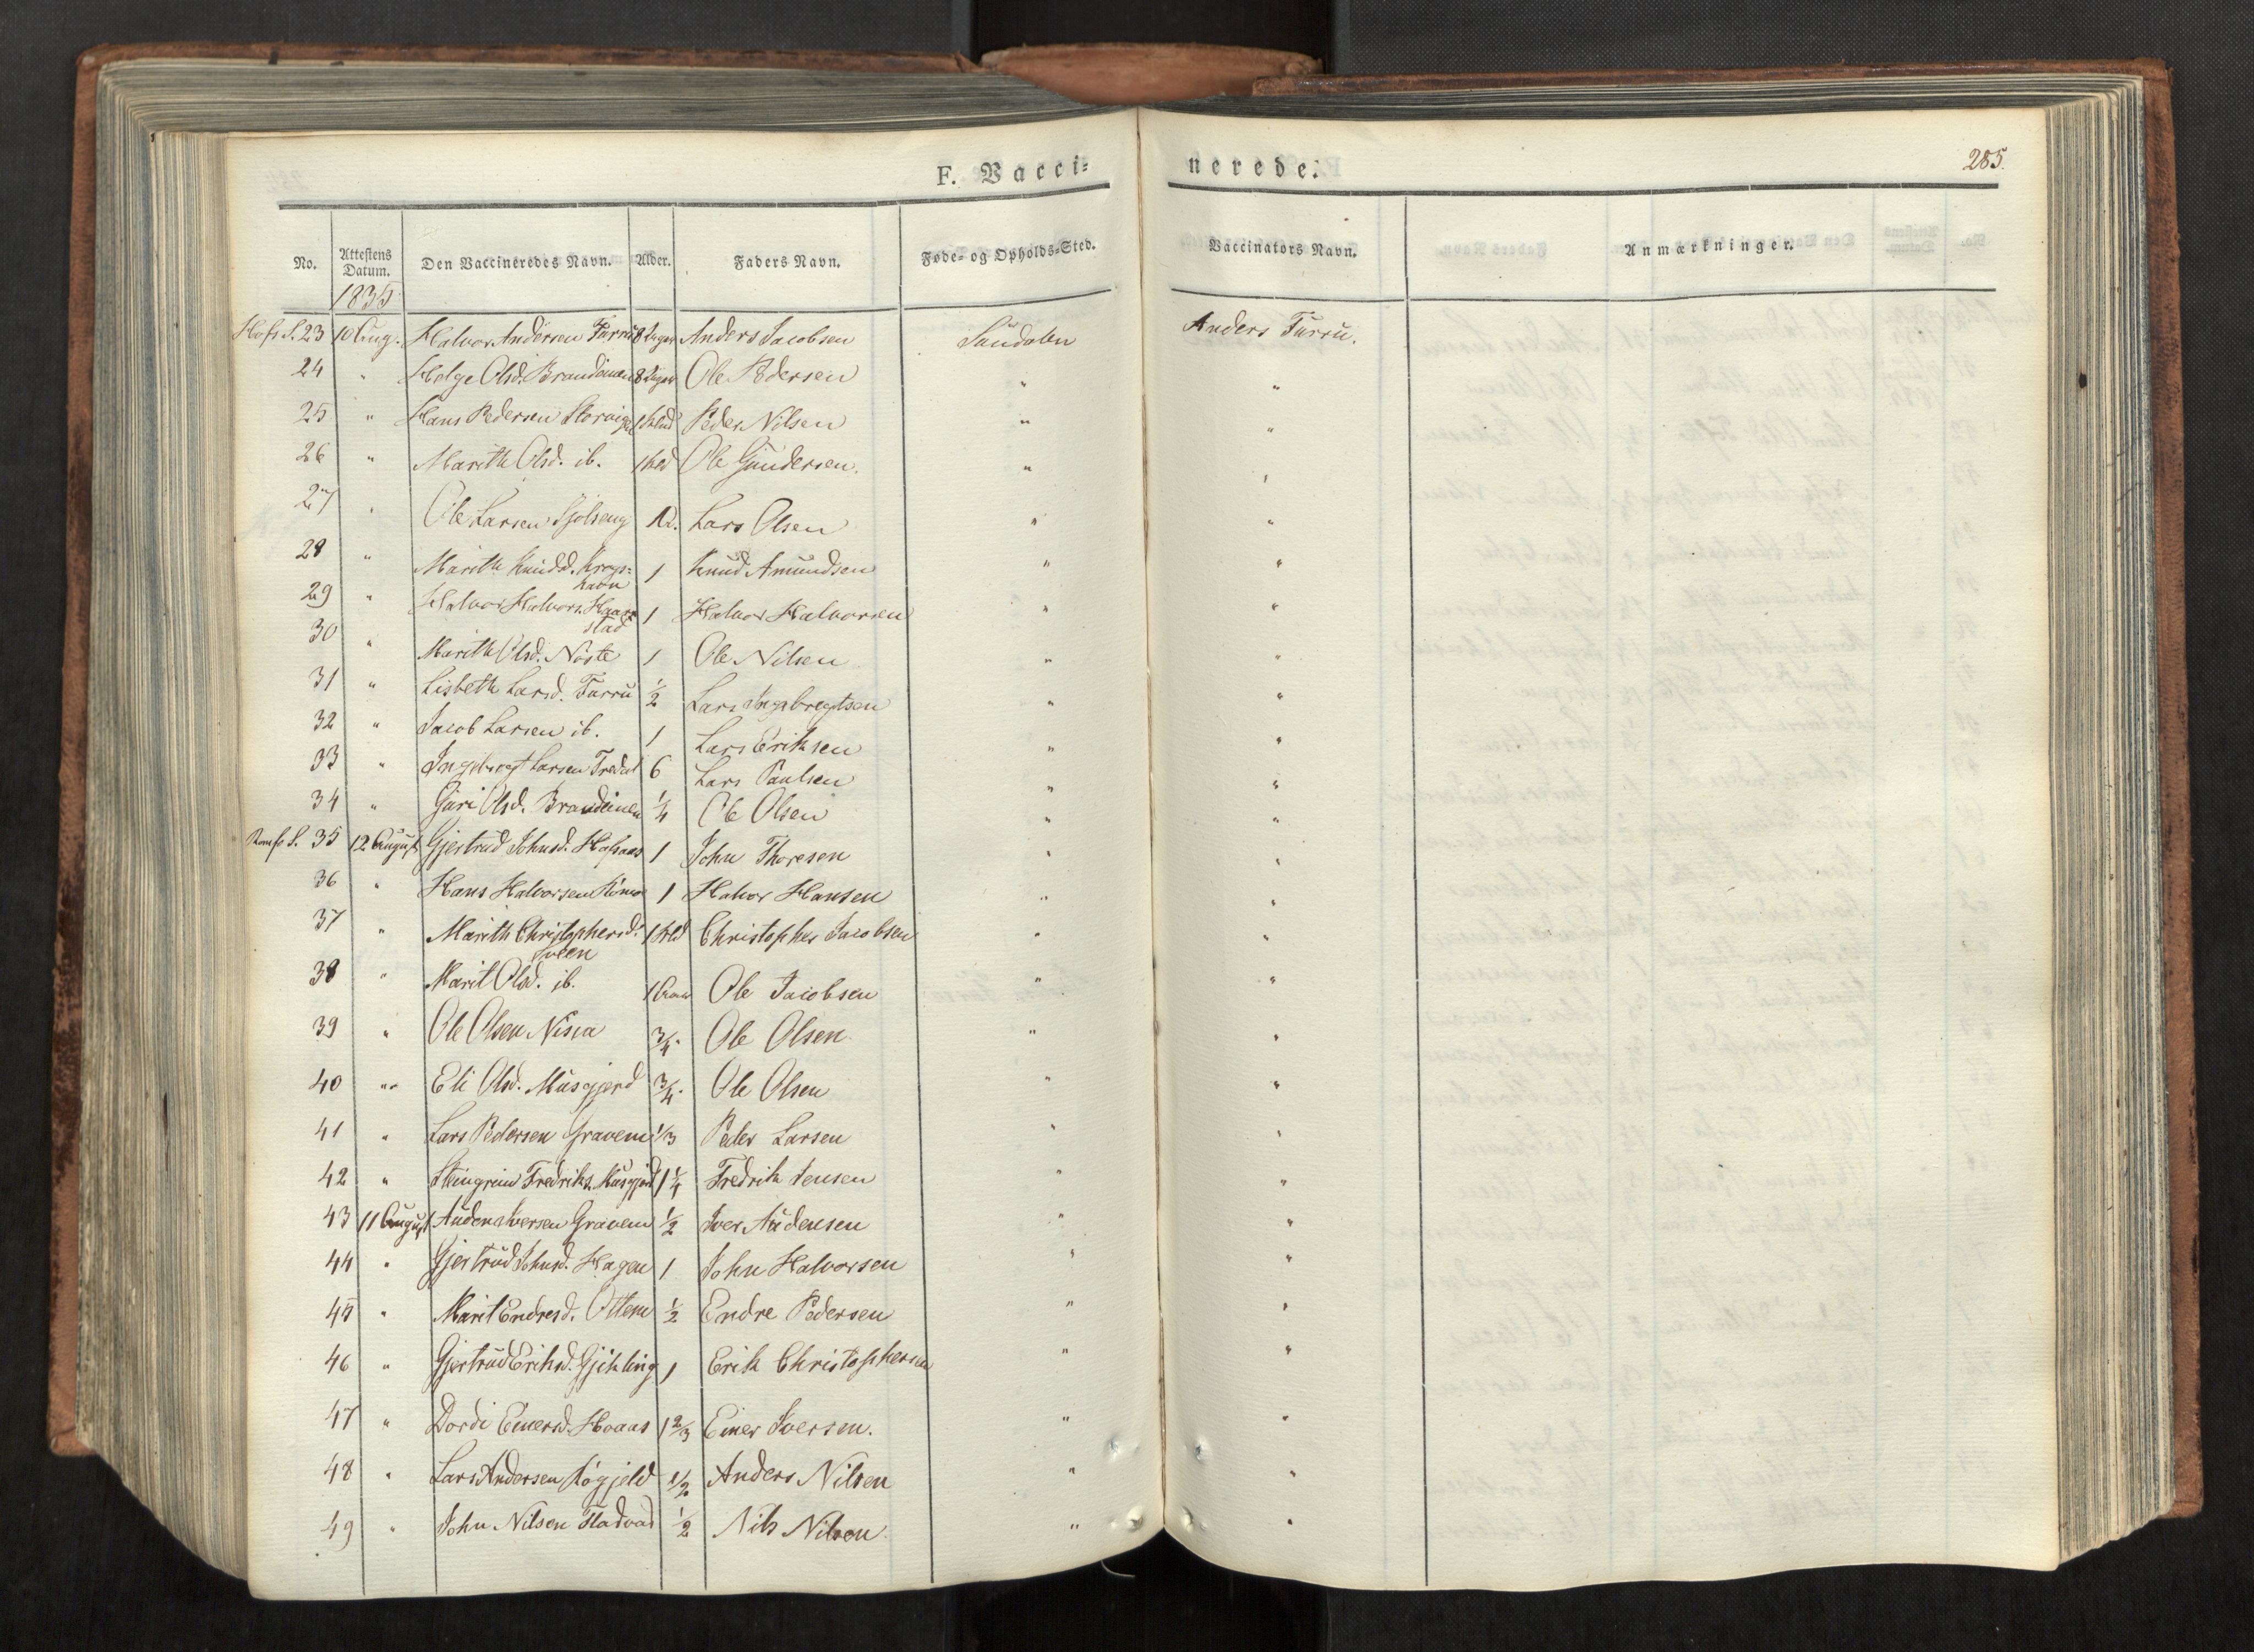 F. Vacci-
nerede.
285.
No. Attestens Datum. Den Vaccineredes Navn. Alder. Faders Navn. Føde- og Opholds-Sted. Vaccinators Navn. Anmærkninger.
1835
Hofs S. 23 10 Aug. Halvor Andersen Furru 8 Anders Jacobsen Sundalen Anders Furru.
24 " Helge Olsd. 8 Ole Pedersen " "
25 " Hans Pedersen 1 Peder Nilsen " "
26 " Marith Olsd. ib. 1 Ole Gundersen. " "
27 " Ole Larsen 12. Lars Olsen " "
28 " Marith Knudsd. Krogs- 1 Knud Amundsen " "
havn
29 " Halvor Halvors. Haas- 1 Halvor Halvorsen " "
stad
30 " Marith Olsd. Nøste 1 Ole Nilsen " "
31 " Lisbeth Larsd. Furru 1/2 Lars Ingebregtsen " "
32 " Jacob Larsen ib. 1 Lars Eriksen " "
33 " Ingebregt Larsen Tredal 6 Lars Paulsen " "
34 " Guri Olsd. 1/4 Ole Olsen " "
Romfo S. 35 12 August Gjertrud Johnsd. 1 John Thoresen " "
36 " Hans Halvorsen 1 Halvor Hansen " "
37 " Marith Christophersd. 1 Christopher Jacobsen " "
38 " Marit Olsd. ib. 1 Ole Jacobsen " "
39 " Ole Olsen Nisja 3/4. Ole Olsen " "
40 " Eli Olsd. Musgjerd 3/4. Ole Olsen " "
41 " Lars Pedersen Gravem 1/3 Peder Larsen " "
42 " Steingrim Fredriks. Musgjerd 1 1/4 Fredrik Jensen " "
43 11 August Auden Iversen Gravem 1/2 Iver Audensen " "
44 " Gjertrud Johnsd. Hagen 1 John Halvorsen " "
45 " Marit Endresd. Ottem 1/2 Endre Pedersen " "
46 " Gjertrud Eriksd. Gjikling 1 Erik Christophersen " "
47 " Dordi Einersd. Hoaas 1 2/3 Einer Iversen. " "
48 " Lars Andersen Løgjeld 1/2 Anders Nilsen " "
49 " John Nilsen Fladvad 1/2 Nils Nilsen " "